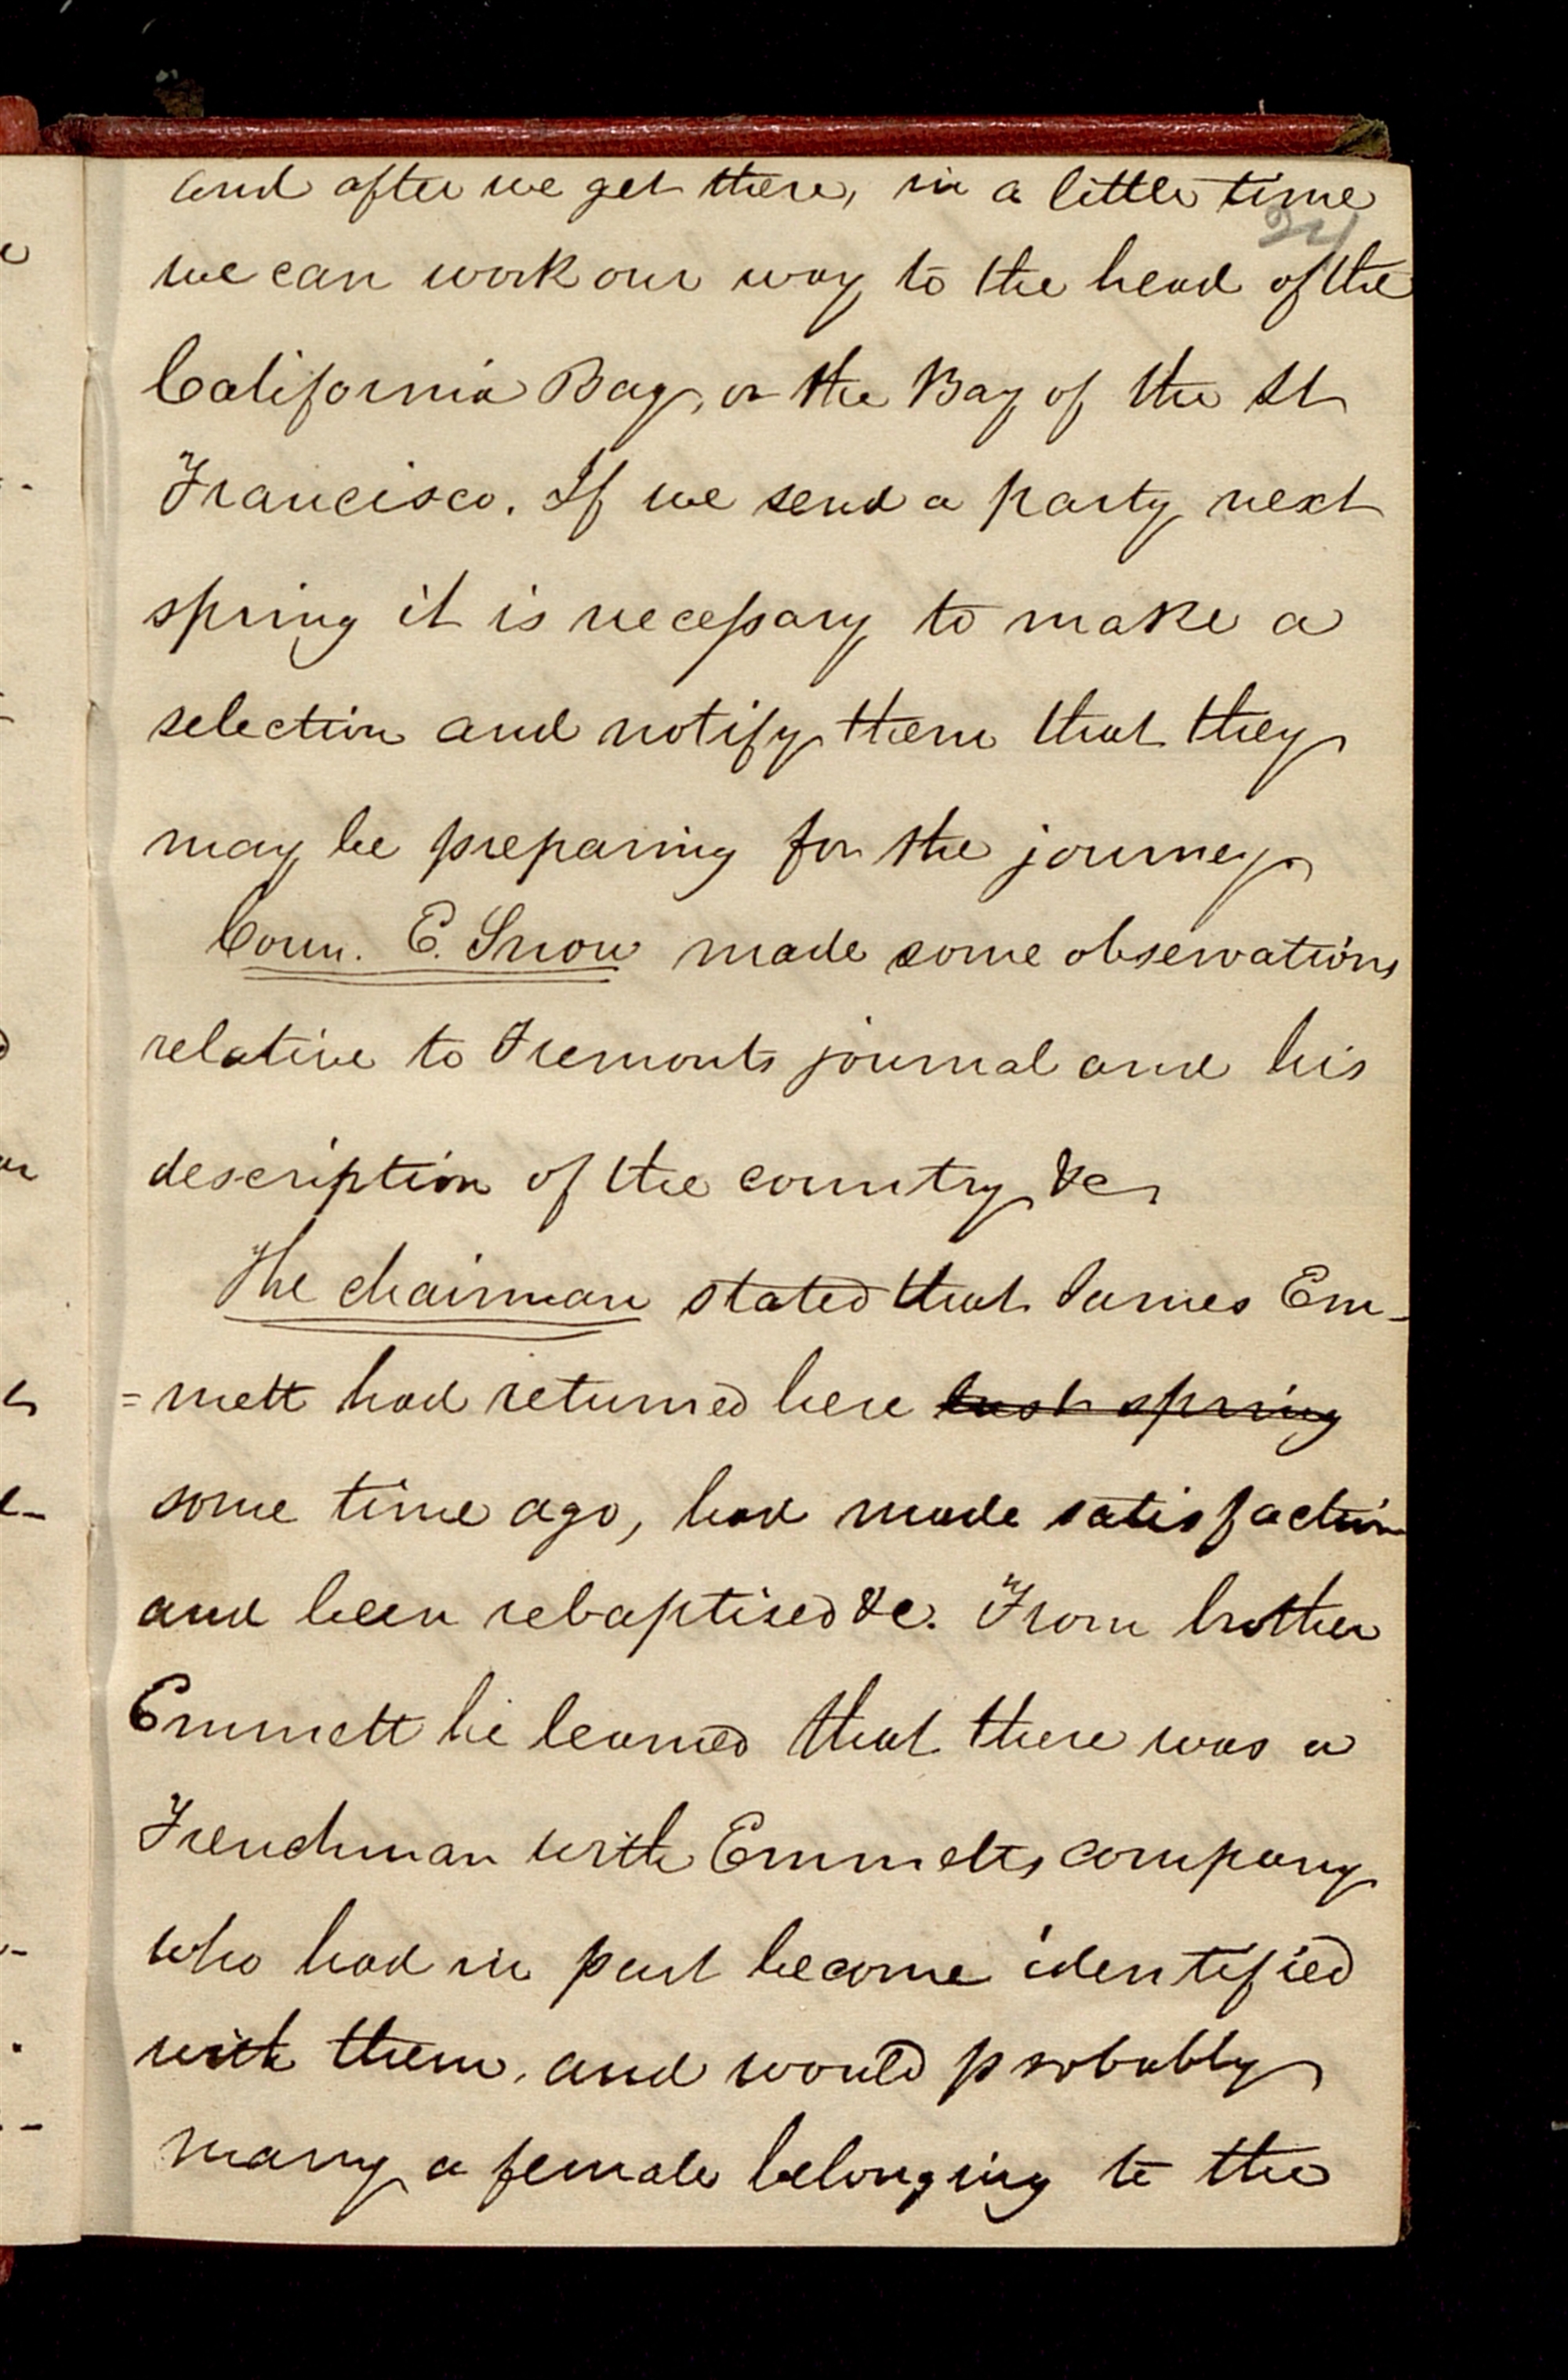 and after we get there, in a little time
24
we can work our way to the head of the
California Bay, or the Bay of the St
Francisco. If we send a party next
spring it is necessary to make a
selection and notify them that they
may be preparing for the journey
Coun. E. Snow made some observations
relative to Fremonts journal and his
description of the country &c
The chairman stated that James Em-
=mett had returned here last spring
some time ago, had made satisfaction
and been rebaptised &c. From brother
Emmett he learned that there was a
Frenchman with Emmetts company
who had in part become identified
with them, and would probably
marry a female belonging to the